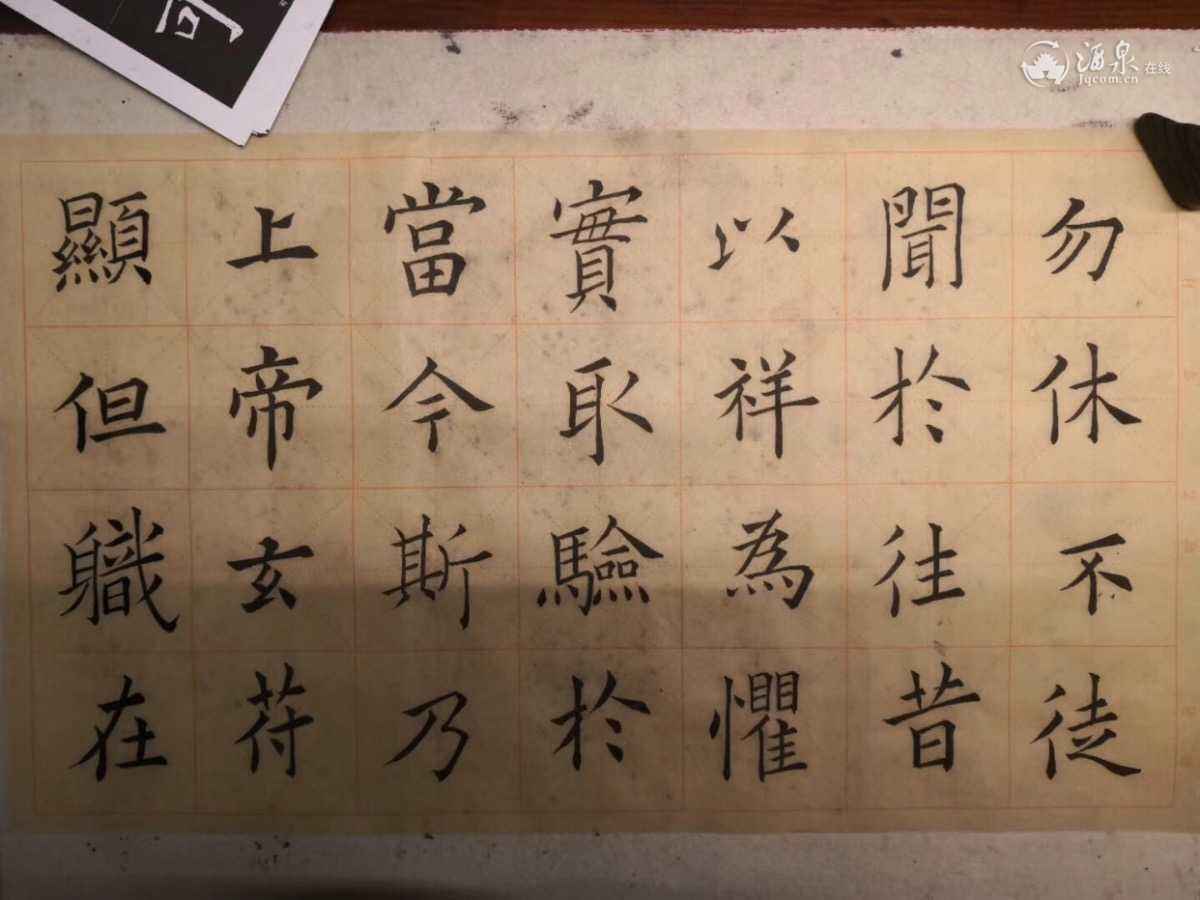 勿休不徒
聞於往昔
以祥為懼
實取驗於
當今斯乃
上帝玄符
顯但職在
可
酒泉在线
Jqcom.cn